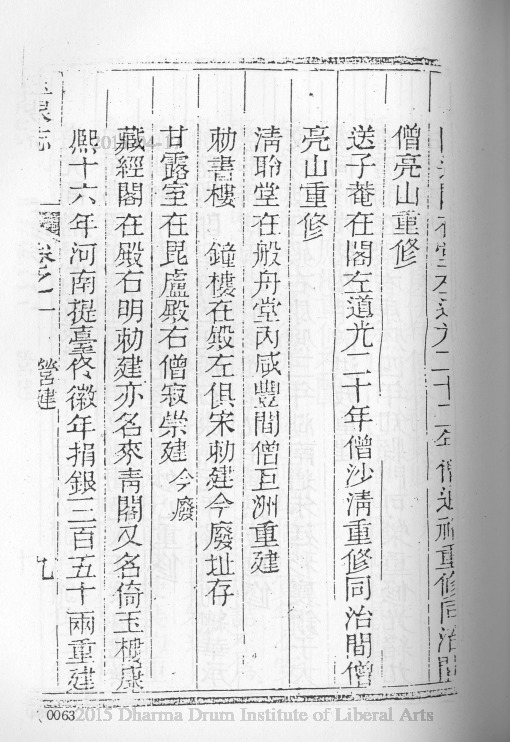 在堂左道光二十二年僧達禪重修同治間
僧亮山重修
送子菴在閣左道光二十年僧沙清重修同治間僧
亮山重修
清聆堂在般舟堂內咸豐間僧巨洲重建
勅書樓 鐘樓在殿左俱宋勅建今廢址存
甘露室在毘盧殿右僧寂崇建今廢
藏經閣在殿右明勅建亦名來青閣又名倚玉樓康
熙十六年河南提臺佟徽年捐銀三百五十兩重建
泉志 卷之一 營建 九
0063
2015 Dharma Drum Institute of Liberal Arts